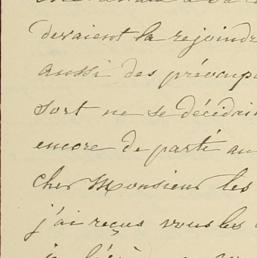 devaient la rejoindre
aussi des préoccup
sort ne se décidrai
encore de parté au
cher Monsieur les
j'ai reçus vous les